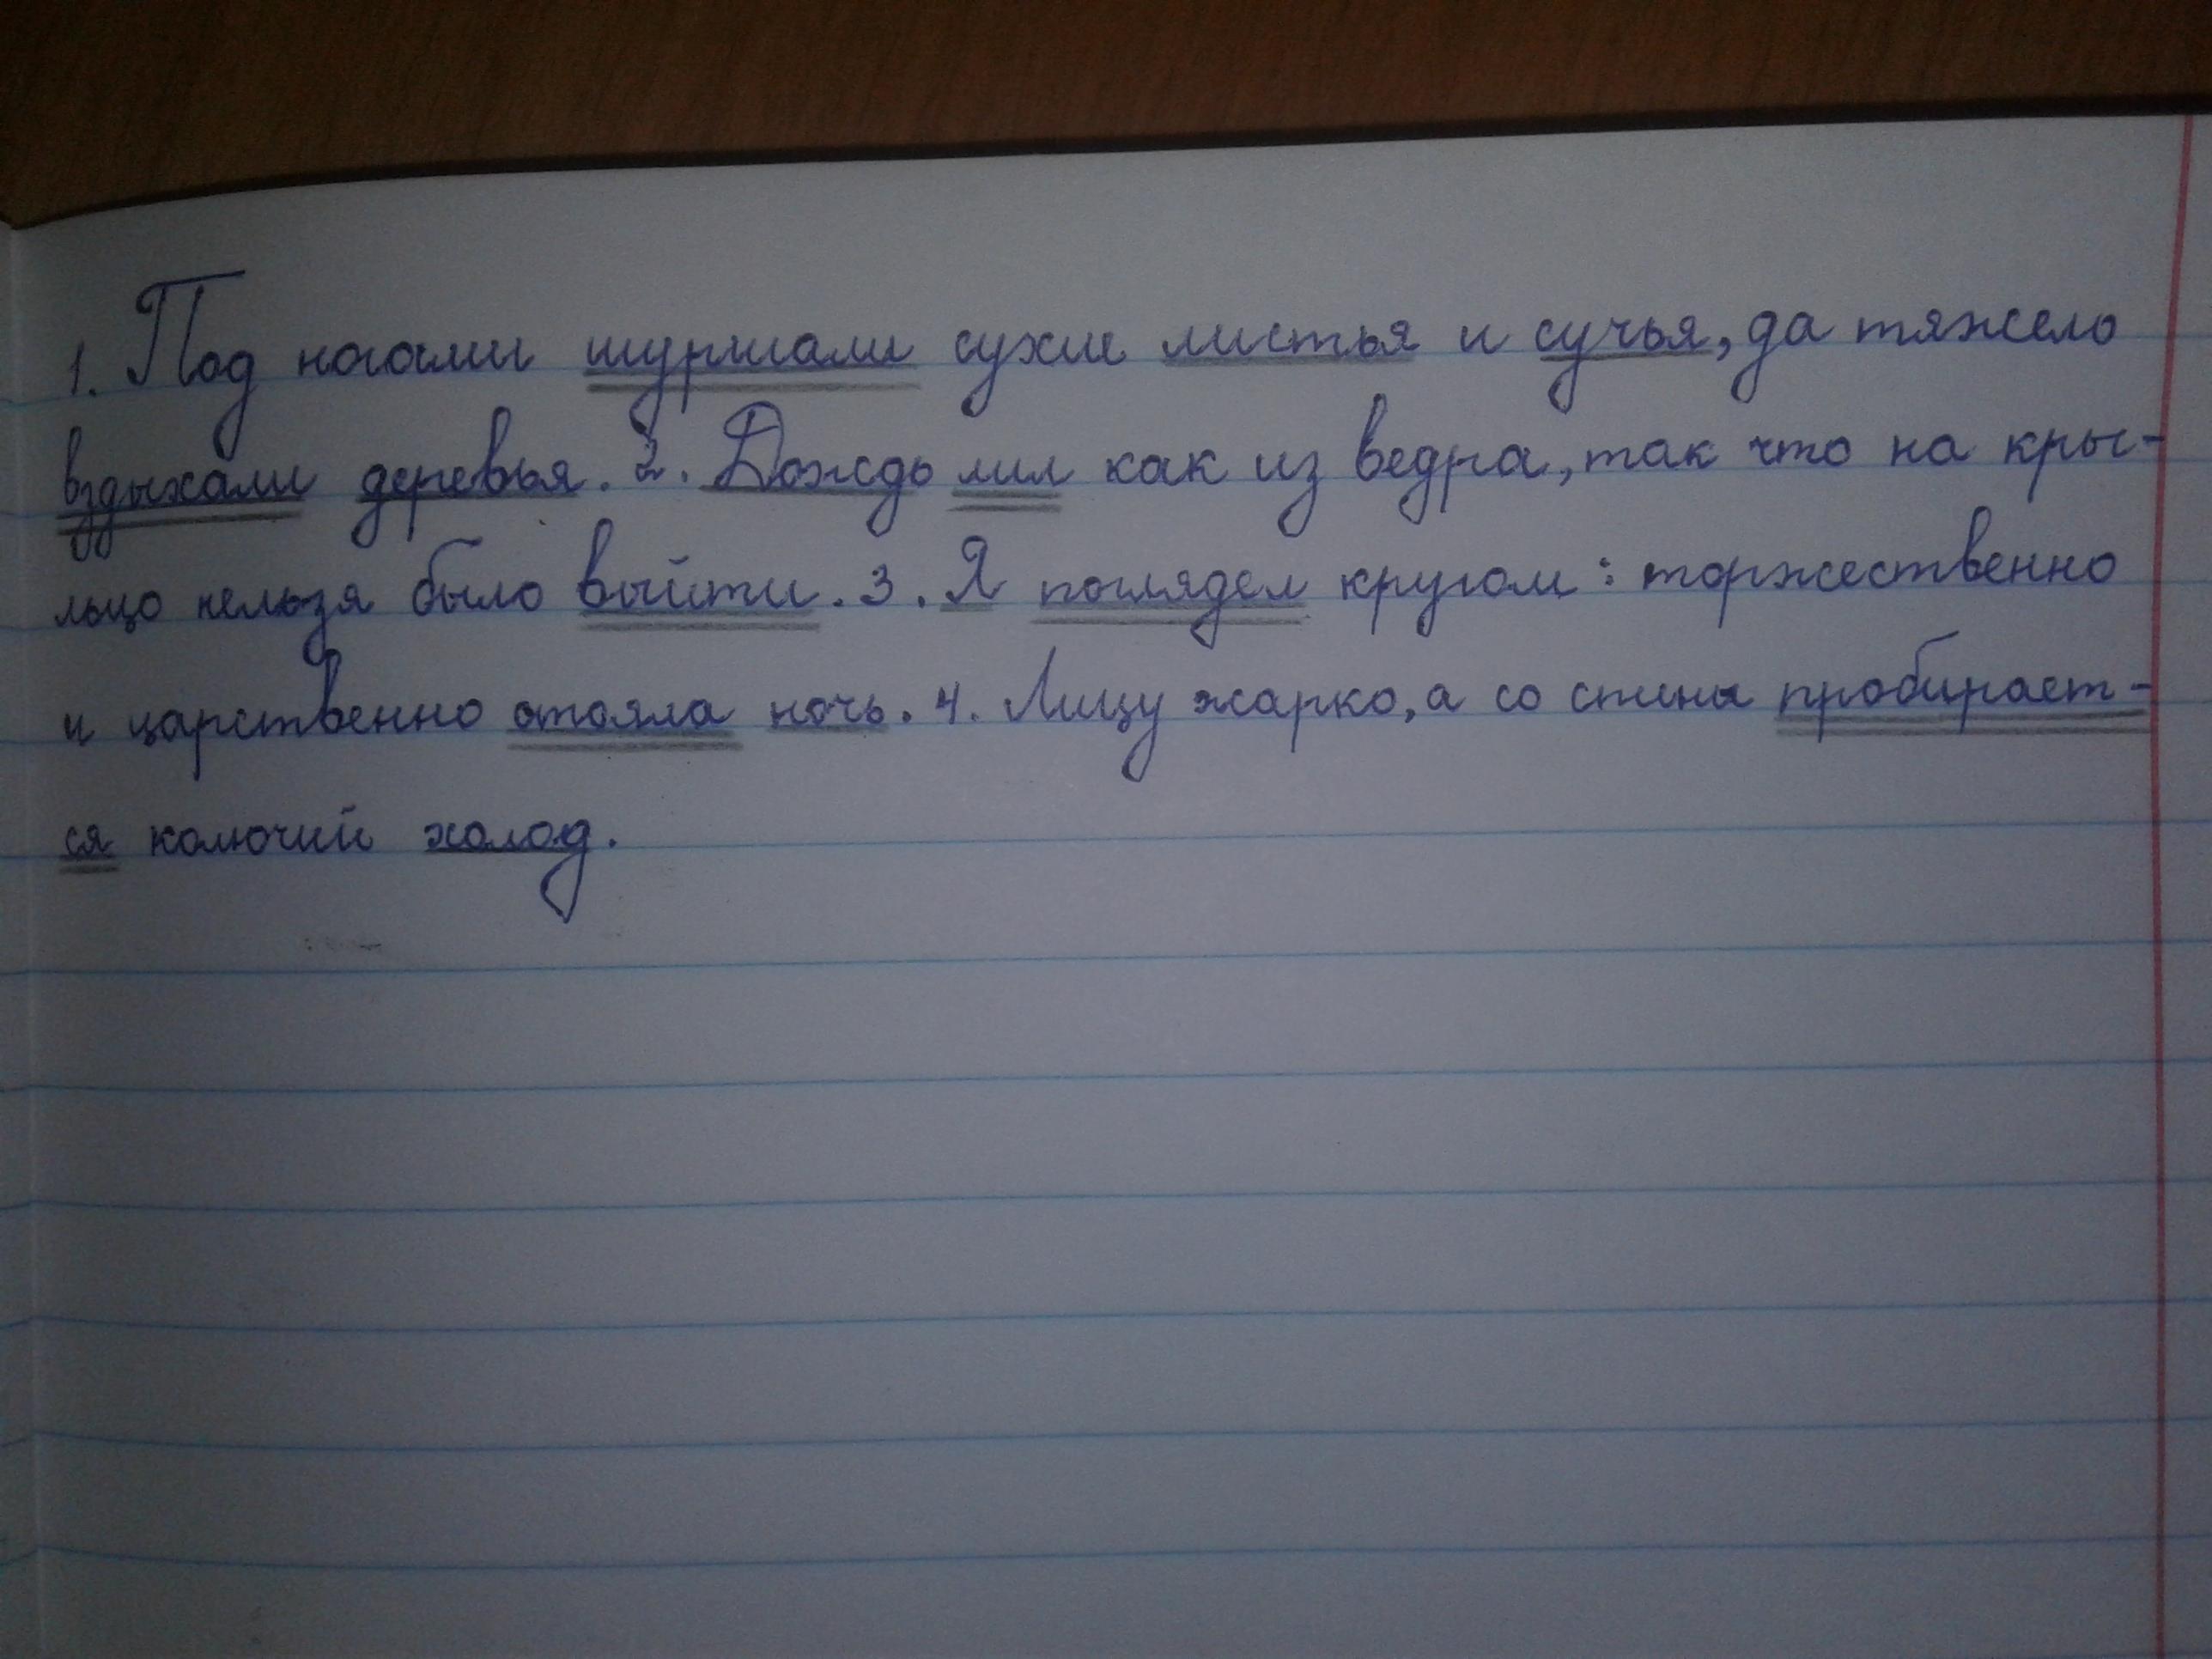 1. Под ногами шуршали сухие листья и сучья, да тяжело
вздыхали деревья. 2. Дождь лил как из ведра, так что на кры-
льцо нельзя было выйти. 3. Я поглядел кругом: торжественно
и царственно стояла ночь. 4. Лицу жарко, а со спины пробирает-
ся колючий холод.